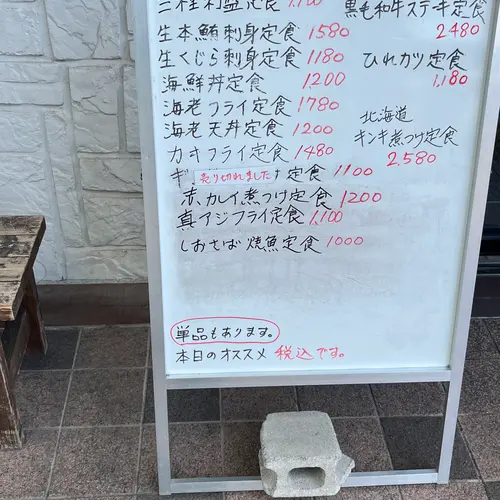 三種刺盛定食 1,100
生本鮪刺身定食 1580
生くじら刺身定食 1180
海鮮丼定食 1200
海老フライ定食 1780
海老天丼定食 1200
カキフライ定食 1480
ギ 売り切れました 定食 1100
赤カレイ煮つけ定食 1200
真アジフライ定食 1,100
しおさば焼魚定食 1000
黒毛和牛ステーキ定食
2480
ひれカツ定食
1,180
北海道
キンキ煮つけ定食
2,580
単品もあります。
本日のオススメ 税込です。